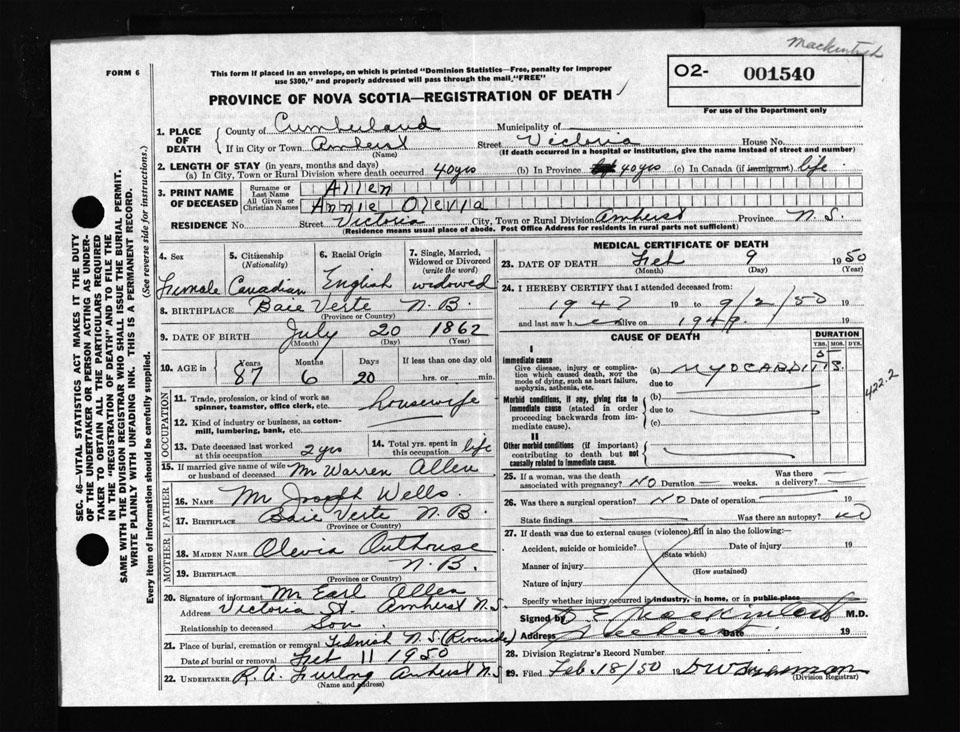 Mackintosh
FORM 6
This form if placed in an envelope, on which is printed "Dominion Statistics—Free, penalty for improper
use $300," and properly addressed will pass through the mail, "FREE"
O2- 001540
For use of the Department only
PROVINCE OF NOVA SCOTIA—REGISTRATION OF DEATH
1. PLACE OF DEATH County of Cumberland Municipality of
If in City or Town Amherst (Name) Street Victoria House No.
(If death occurred in a hospital or institution, give the name instead of street and number)
2. LENGTH OF STAY (in years, months and days)
(a) In City, Town or Rural Division where death occurred 40 yrs (b) In Province 40 yrs (c) In Canada (if immigrant) life
3. PRINT NAME OF DECEASED Surname or Last Name Allen
All Given or Christian Names Annie Olevia
RESIDENCE No. Street Victoria City, Town or Rural Division Amherst Province N.S.
(Residence means usual place of abode. Post Office Address for residents in rural parts not sufficient)
4. Sex Female
5. Citizenship (Nationality) Canadian
6. Racial Origin English
7. Single, Married, Widowed or Divorced (write the word) widowed
8. BIRTHPLACE Baie Verte N.B.
(Province or Country)
9. DATE OF BIRTH July 20 1862
(Month) (Day) (Year)
10. AGE in Years 87 Months 6 Days 20 If less than one day old hrs. or min.
OCCUPATION
11. Trade, profession, or kind of work as spinner, teamster, office clerk, etc. housewife
12. Kind of industry or business, as cotton-mill, lumbering, bank, etc.
13. Date deceased last worked at this occupation 2 yrs
14. Total yrs. spent in this occupation life
15. If married give name of wife or husband of deceased Mr Warren Allen
FATHER
16. NAME Mr Joseph Wells
17. BIRTHPLACE Baie Verte N.B.
(Province or Country)
MOTHER
18. MAIDEN NAME Olevia Outhouse
19. BIRTHPLACE N.B.
(Province or Country)
20. Signature of informant Mr Earl Allen
Address Victoria St. Amherst N.S.
Relationship to deceased Son
21. Place of burial, cremation or removal Tidnish N.S. (Riverside)
Date of burial or removal Feb 11 1950
22. UNDERTAKER R. A. Furlong Amherst N.S
(Name and address)
MEDICAL CERTIFICATE OF DEATH
23. DATE OF DEATH Feb 9 1950
(Month) (Day) (Year)
24. I HEREBY CERTIFY that I attended deceased from:
1947 19 to 9/2/50 19
and last saw h er alive on 1949. 19
CAUSE OF DEATH
DURATION
YRS. MOS. DYS.
I
Immediate cause
Give disease, injury or complication which caused death, NOT the mode of dying, such as heart failure, asphyxia, asthenia, etc.
(a) MYOCARDITIS. 5
due to
Morbid conditions, if any, giving rise to immediate cause (stated in order proceeding backwards from immediate cause).
(b)
due to
(c)
422.2
II
Other morbid conditions (if important) contributing to death but not causally related to immediate cause.
25. If a woman, was the death associated with pregnancy? NO Duration — weeks. Was there a delivery? —
26. Was there a surgical operation? NO Date of operation 19
State findings Was there an autopsy? NO
27. If death was due to external causes (violence) fill in also the following:—
Accident, suicide or homicide? Date of injury 19
(State which)
Manner of injury
(How sustained)
Nature of injury
Specify whether injury occurred in industry, in home, or in public place
Signed by D E Mackintosh M.D.
Address Date 19
28. Division Registrar's Record Number
29. Filed Feb. 18/50 19
(Division Registrar)
SEC. 46—VITAL STATISTICS ACT MAKES IT THE DUTY
OF THE UNDERTAKER OR PERSON ACTING AS UNDER-
TAKER TO OBTAIN ALL THE PARTICULARS REQUIRED
IN THE "REGISTRATION OF DEATH" AND TO FILE THE
SAME WITH THE DIVISION REGISTRAR WHO SHALL ISSUE THE BURIAL PERMIT.
WRITE PLAINLY WITH UNFADING INK. THIS IS A PERMANENT RECORD.
Every item of information should be carefully supplied. (See reverse side for instructions.)